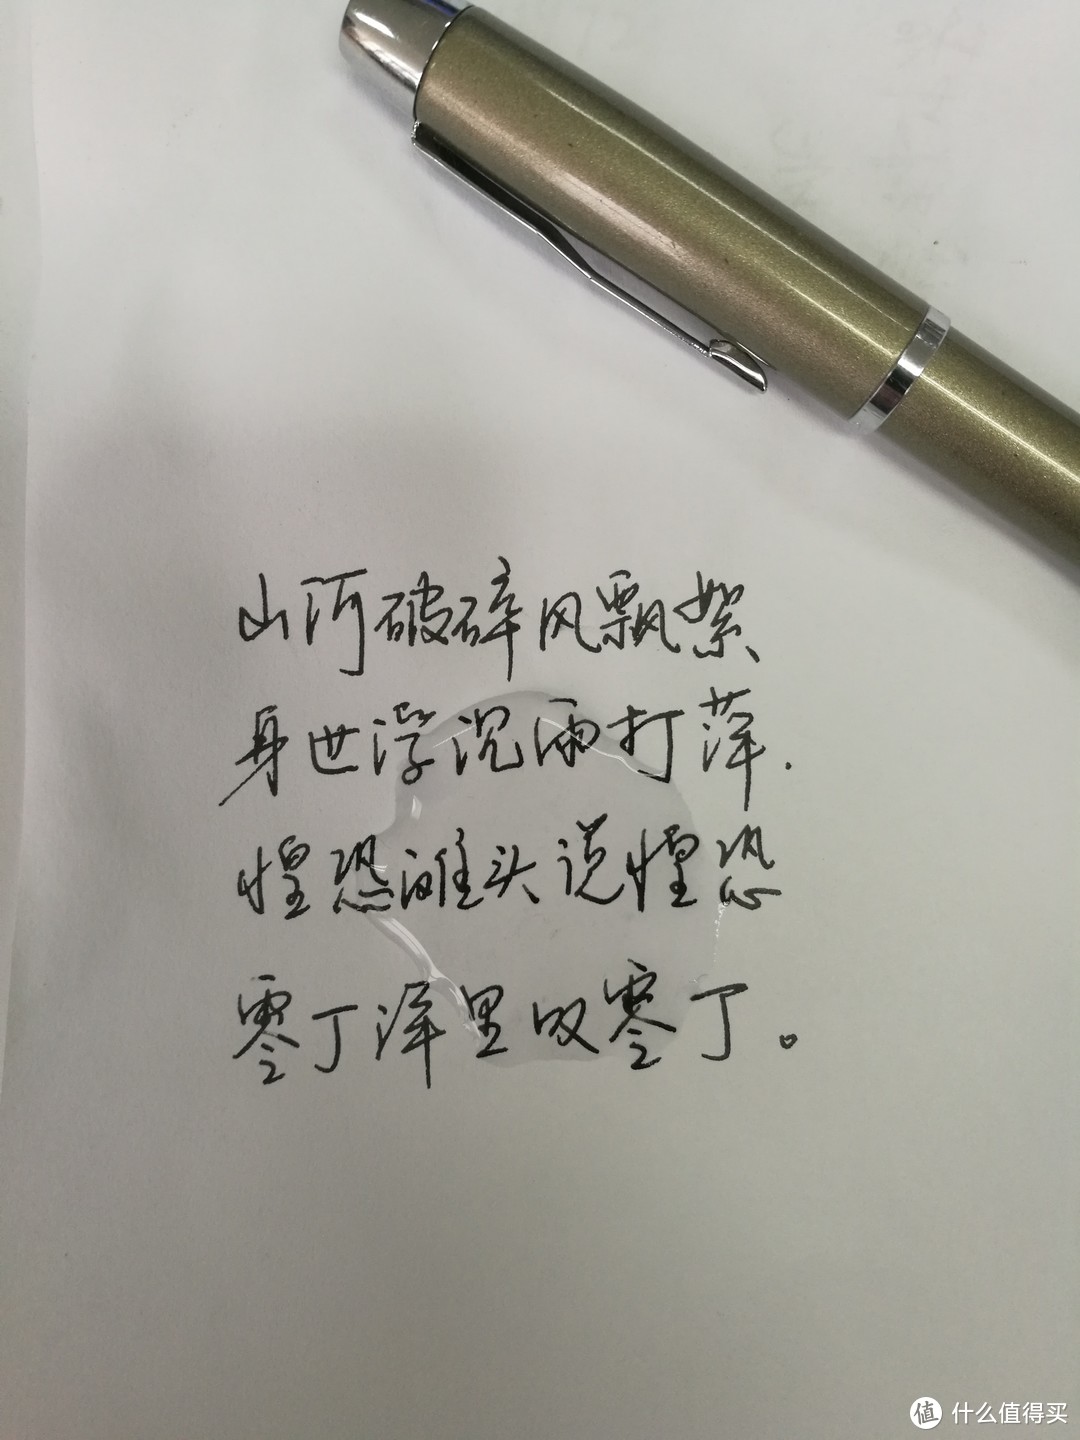 山河破碎风飘絮、
身世浮沉雨打萍.
惶恐滩头说惶恐
零丁洋里叹零丁。
值 什么值得买